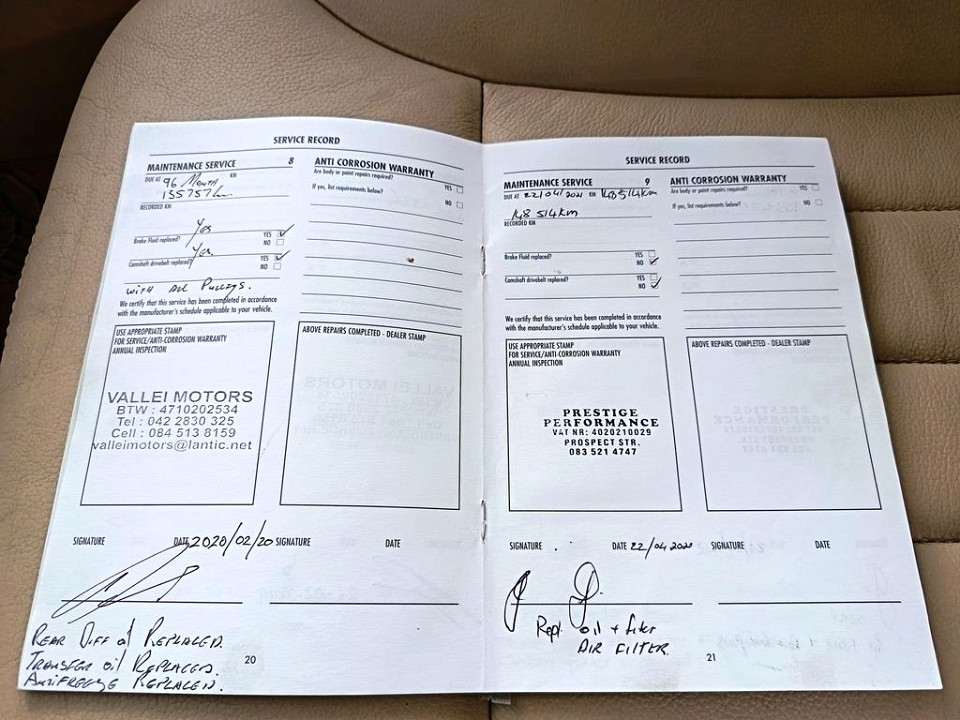 SERVICE RECORD
MAINTENANCE SERVICE 8
DUE AT 96 Month KM
135757km
RECORDED KM
Yes
Brake Fluid replaced? YES
NO
Yes
Camshaft drivebelt replaced? YES
NO
with All Pulleys.
We certify that this service has been completed in accordance
with the manufacturer's schedule applicable to your vehicle.
USE APPROPRIATE STAMP
FOR SERVICE/ANTI-CORROSION WARRANTY
ANNUAL INSPECTION
VALLEI MOTORS
BTW : 4710202534
Tel : 042 2830 325
Cell : 084 513 8159
valleimotors@lantic.net
SIGNATURE DATE 2020/02/20
REAR Diff oil REPLACED.
TRANSFER oil REPLACED.
ANTIFREEZE REPLACED.
ANTI CORROSION WARRANTY
Are body or paint repairs required? YES
If yes, list requirements below? NO
ABOVE REPAIRS COMPLETED - DEALER STAMP
SIGNATURE DATE
20
SERVICE RECORD
MAINTENANCE SERVICE 9
DUE AT 22/04/2021 KM 148514KM
148 514KM
RECORDED KM
Brake Fluid replaced? YES
NO
Camshaft drivebelt replaced? YES
NO
We certify that this service has been completed in accordance
with the manufacturer's schedule applicable to your vehicle.
USE APPROPRIATE STAMP
FOR SERVICE/ANTI-CORROSION WARRANTY
ANNUAL INSPECTION
PRESTIGE
PERFORMANCE
VAT NR: 4020210029
PROSPECT STR.
083 521 4747
SIGNATURE DATE 22/04/2021
Repl. oil + filter
AIR FILTER.
ANTI CORROSION WARRANTY
Are body or paint repairs required? YES
If yes, list requirements below? NO
ABOVE REPAIRS COMPLETED - DEALER STAMP
SIGNATURE DATE
21